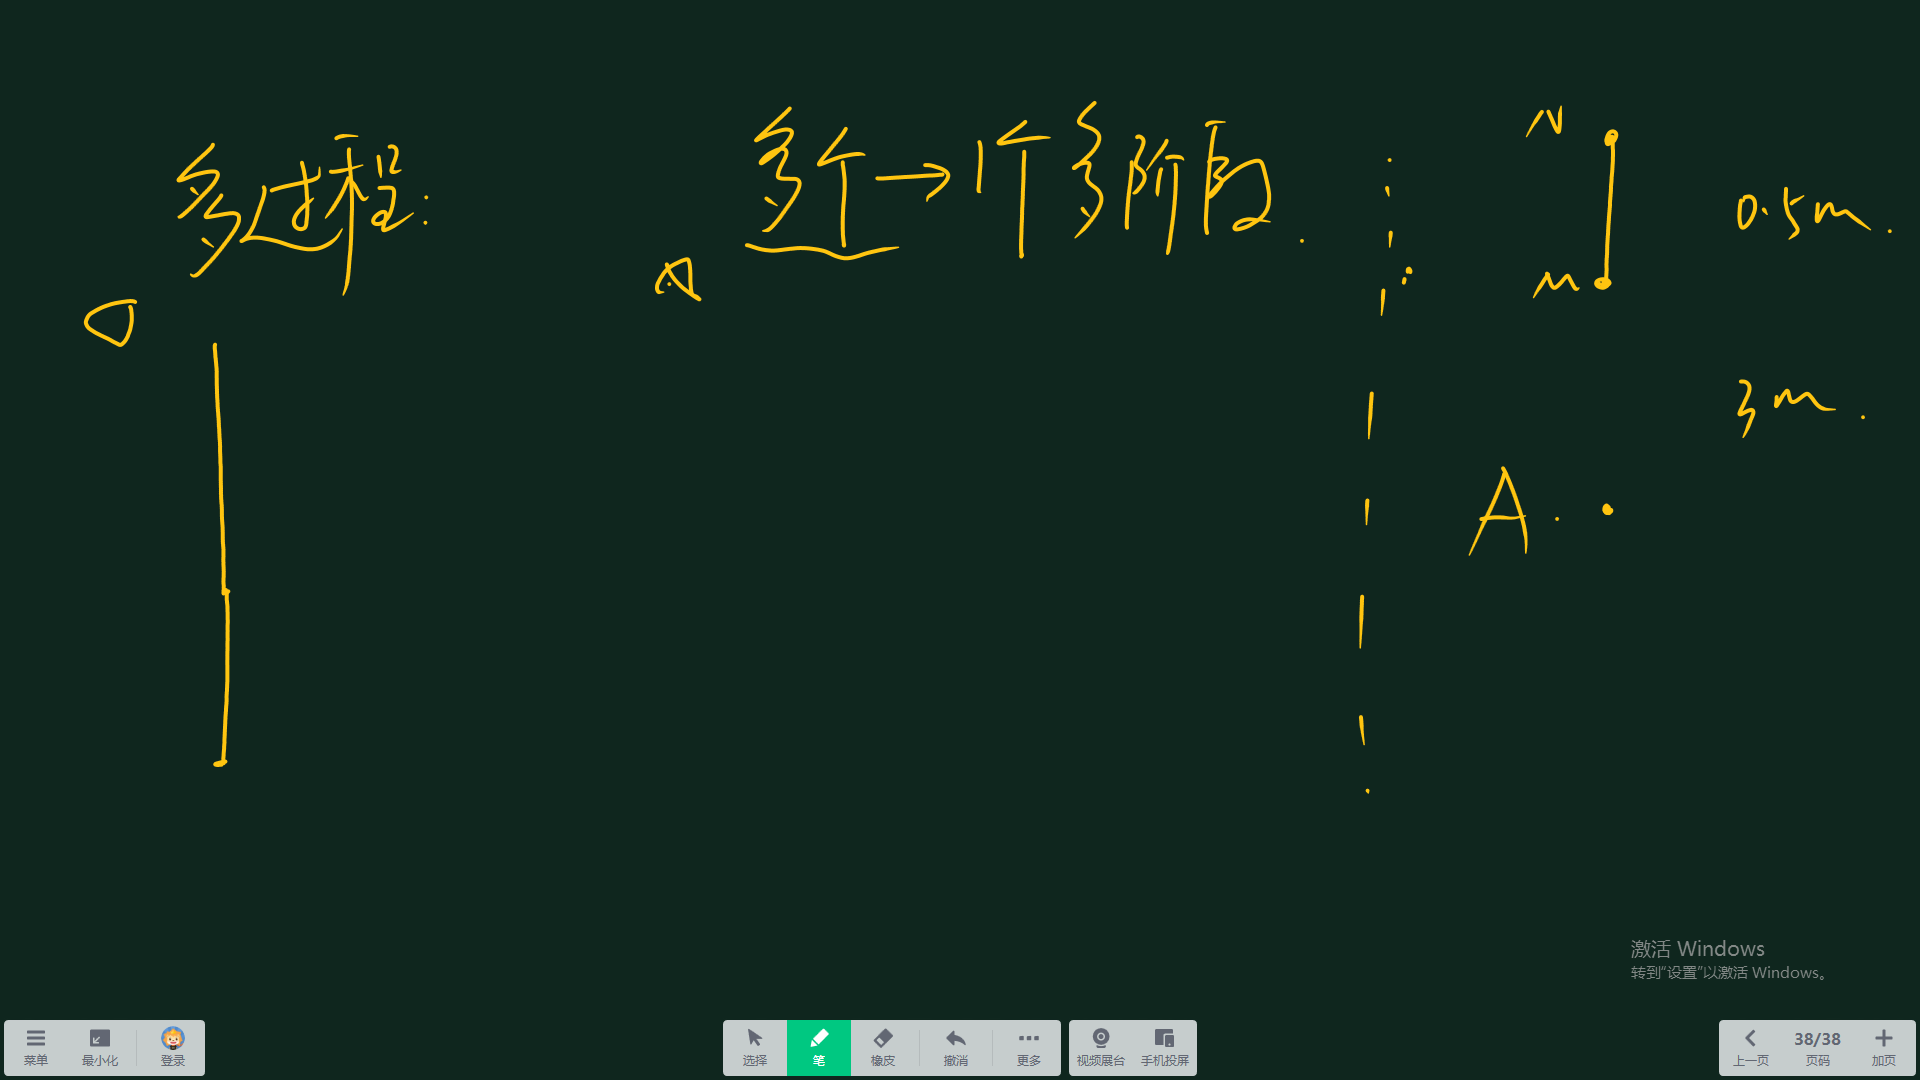 多过程:
多个→1个多阶段.
N
0.5m.
M
3m.
A.
激活 Windows
转到“设置”以激活 Windows。
菜单
最小化
登录
选择
笔
橡皮
撤消
更多
视频展台
手机投屏
上一页
38/38
页码
加页